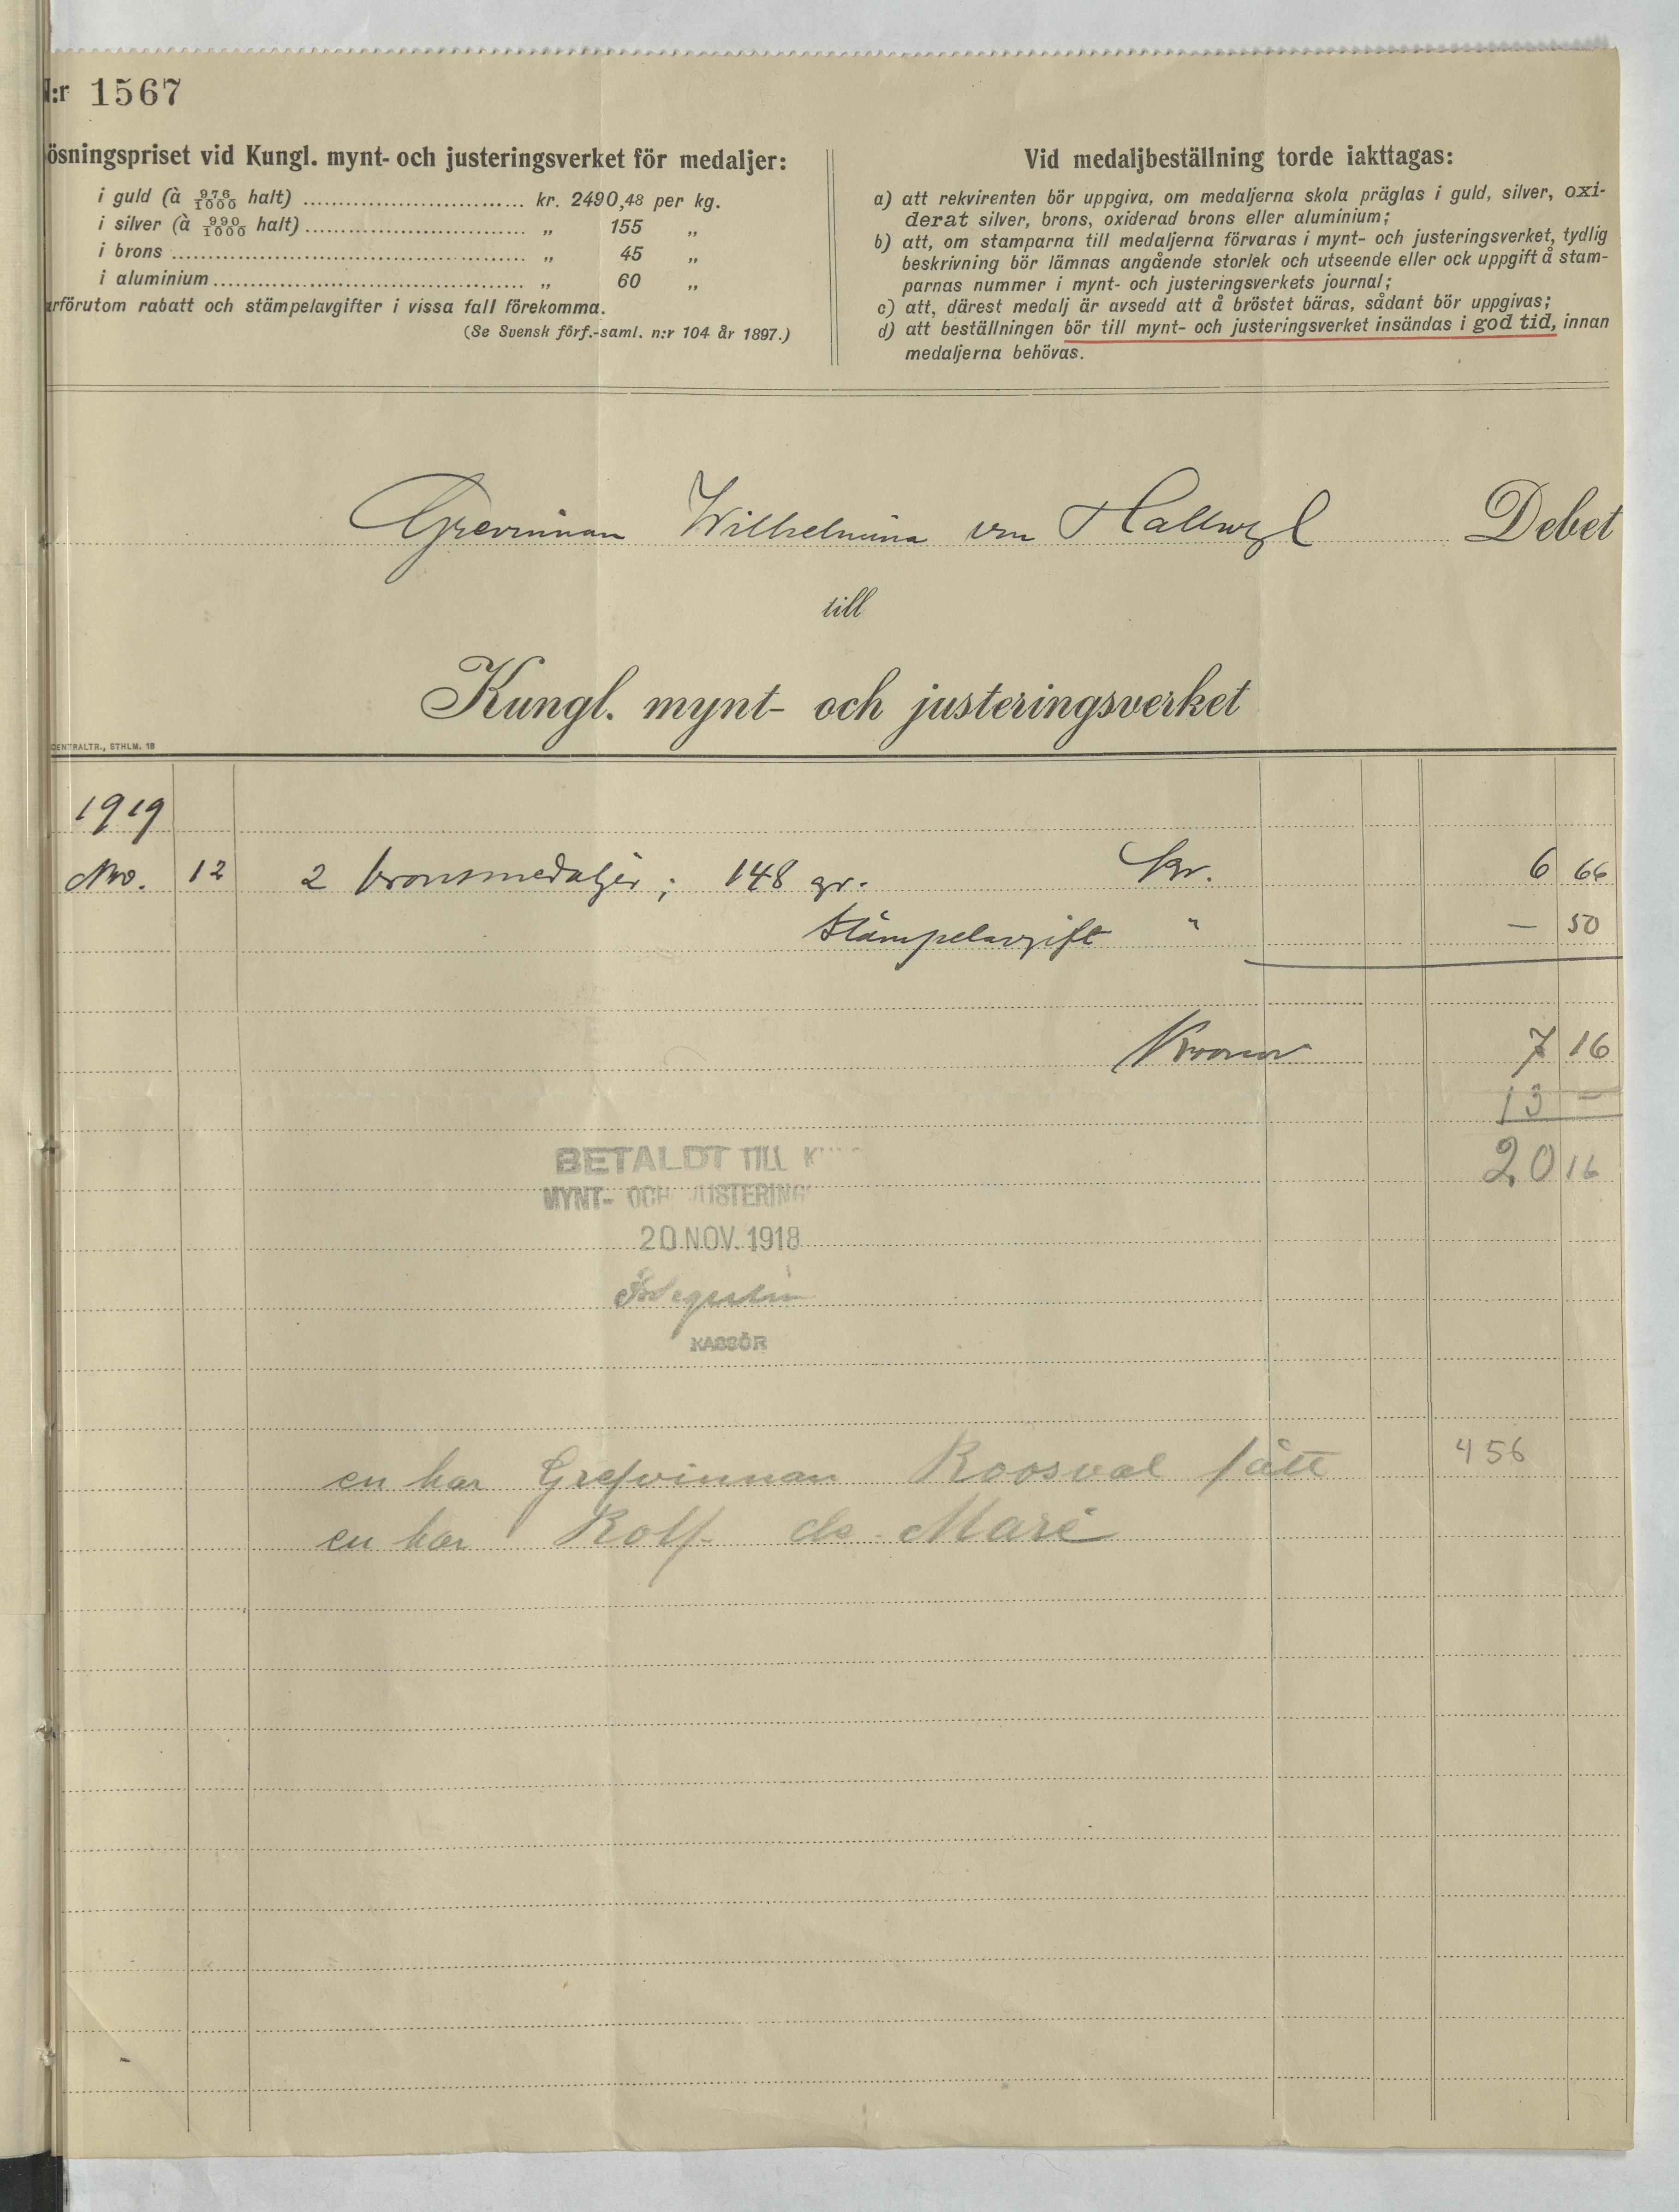 N:r 1567
ösningspriset vid Kungl. mynt- och justeringsverket för medaljer:
i guld (à 976/1000 halt) ............................ kr. 2490,48 per kg.
i silver (à 990/1000 halt) ............................ „ 155 „
i brons ............................ „ 45 „
i aluminium ............................ „ 60 „
ärförutom rabatt och stämpelavgifter i vissa fall förekomma.
(Se Svensk förf.-saml. n:r 104 år 1897.)
Vid medaljbeställning torde iakttagas:
a) att rekvirenten bör uppgiva, om medaljerna skola präglas i guld, silver, oxi-
derat silver, brons, oxiderad brons eller aluminium;
b) att, om stamparna till medaljerna förvaras i mynt- och justeringsverket, tydlig
beskrivning bör lämnas angående storlek och utseende eller ock uppgift å stam-
parnas nummer i mynt- och justeringsverkets journal;
c) att, därest medalj är avsedd att å bröstet bäras, sådant bör uppgivas;
d) att beställningen bör till mynt- och justeringsverket insändas i god tid, innan
medaljerna behövas.
Grevinnan Wilhelmina von Hallwyl Debet
till
Kungl. mynt- och justeringsverket
CENTRALTR., STHLM. 18
1919
Nov. 12 2 bronsmedaljer; 148 gr. Kr. 6 66
Stämpelavgift " — 50
Kronor 7 16
13 —
20 16
BETALDT TILL
MYNT- OCH JUSTERING
20 NOV. 1918
KASSÖR
en har Grefvinnan Roosval fått 456
en har Rolf de Maré